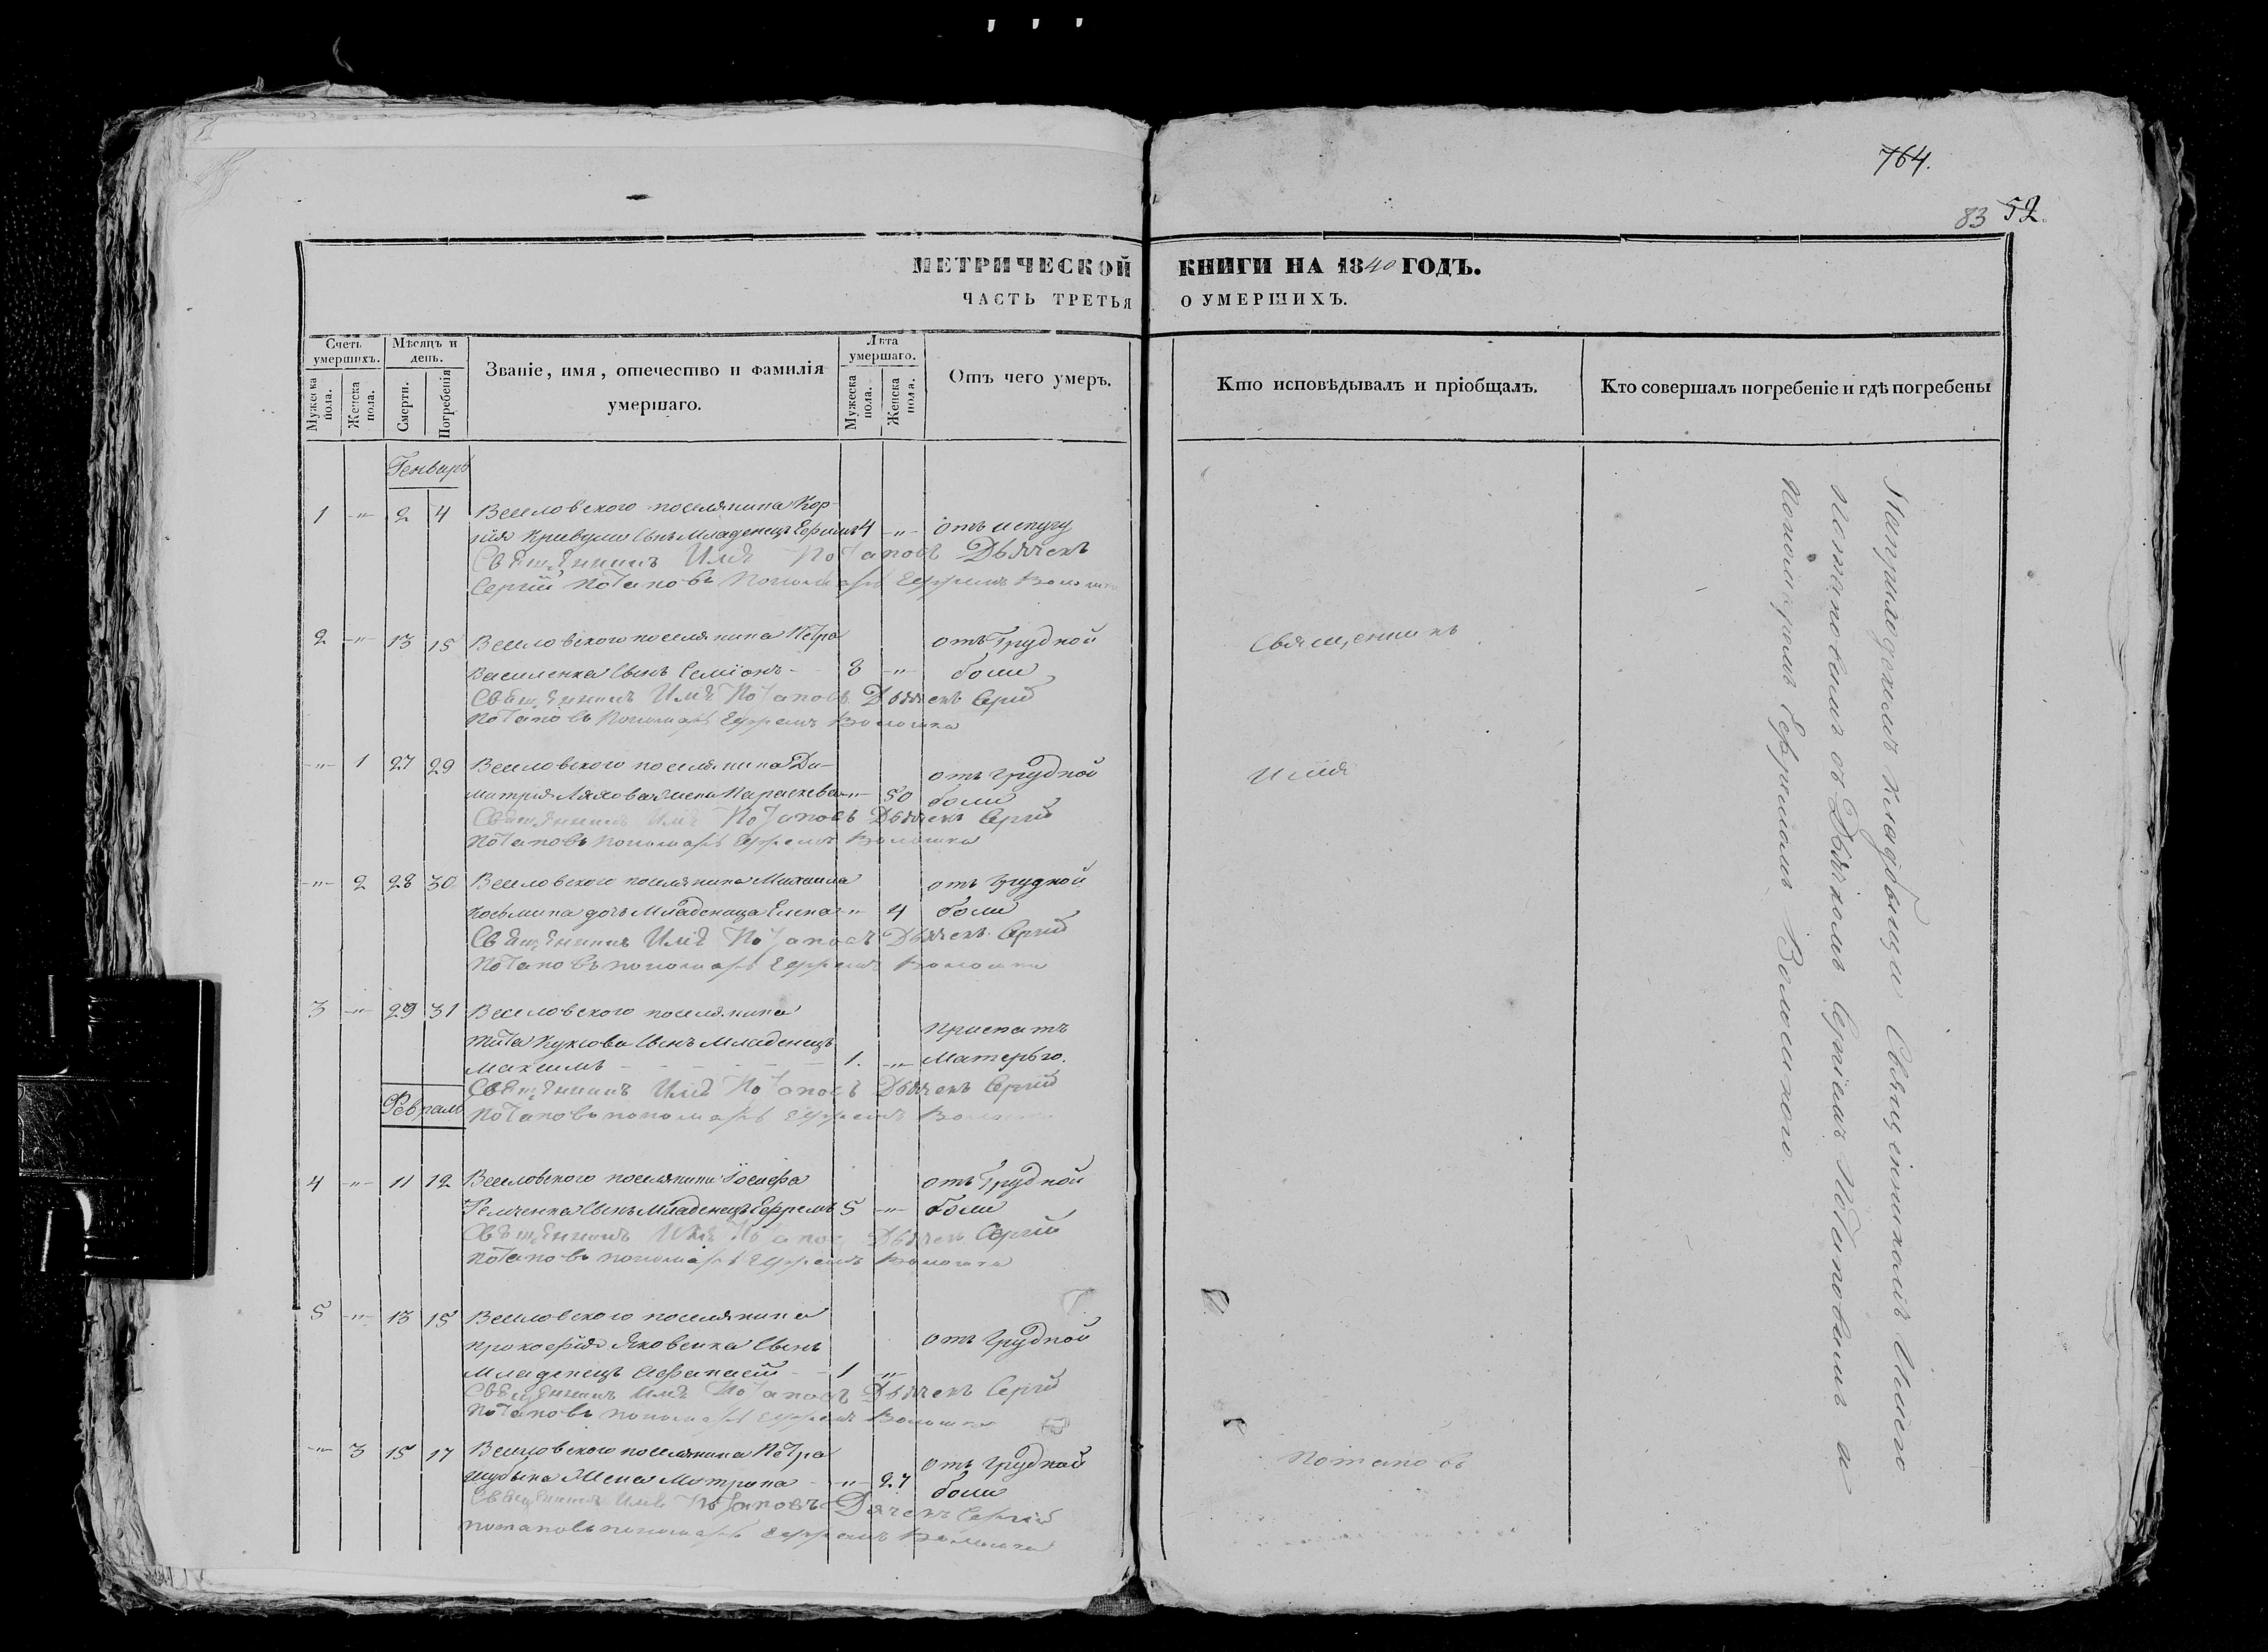 764.
83 52
МЕТРИЧЕСКОЙ КНИГИ НА 1840 ГОДЪ.
ЧАСТЬ ТРЕТЬЯ О УМЕРШИХЪ.
Счетъ умершихъ.
Мужеска пола.
Женска пола.
Мѣсяцъ и день.
Смерти.
Погребенія
Званіе, имя, отечество и фамилія
умершаго.
Лѣта умершаго.
Мужеска пола.
Женска пола.
Отъ чего умеръ.
Кто исповѣдывалъ и пріобщалъ.
Кто совершалъ погребеніе и гдѣ погребены
Генварь
1 -"- 2 4 Веселовского поселянина Кор-
нія Кривули сынъ Младенецъ Ефремъ 4 -"- отъ испугу
Священникъ Илія Потаповъ Дьячекъ
Сергій Потаповъ Пономарь Ефремъ
2 -"- 13 15 Веселовского поселянина Петра отъ Грудной
Василенка сынъ Семіонъ - 8 -"- боли
Священникъ Илія Потаповъ Дьячекъ Сергій
Потаповъ Пономарь Ефремъ Волошка
-"- 1 27 29 Веселовского поселянина Ди-
митрія Ляхова жена Параскева -"- 50 отъ грудной боли
Священникъ Илія Потаповъ Дьячекъ Сергій
Потаповъ Пономарь Ефремъ Волошка
-"- 2 28 30 Веселовского поселянина Михаила отъ грудной
Косьмина дочь Младеница Елена -"- 4 боли
Священникъ Илія Потаповъ Дьячекъ Сергій
Потаповъ пономарь Ефремъ Волошка
3 -"- 29 31 Веселовского поселянина
Тита сынъ Младенецъ приспатъ
Максимъ - 1. -"- Матерью.
Священникъ Илія Потаповъ Дьячекъ Сергій
Потаповъ пономарь Ефремъ
Февраль
4 -"- 11 12 Веселовского поселянина Іосифа отъ Грудной
сынъ Младенецъ Ефремъ 5 -"- боли
Священникъ Илія Дьячекъ Сергій
Потаповъ пономарь Ефремъ Волошка
5 -"- 13 15 Веселовского поселянина
Прокофія Яковенка сынъ отъ грудной
Младенецъ Афанасій - 1 -"-
Священникъ Илія Потаповъ Дьячекъ Сергій
Потаповъ пономарь Ефремъ Волошка
-"- 3 15 17 Веселовского поселянина Петра отъ грудной
жена Матрона -"- 27 боли
Священникъ Илія Потаповъ Дячекъ Сергій
потаповъ пономарь Ефремъ Волошка
Священникъ
Илія
Потаповъ
На приходскомъ кладбищи Священникомъ Иліею
Потаповымъ съ Дьячкомъ Сергіемъ Потаповымъ и
Пономаремъ Ефремомъ Волошкою.